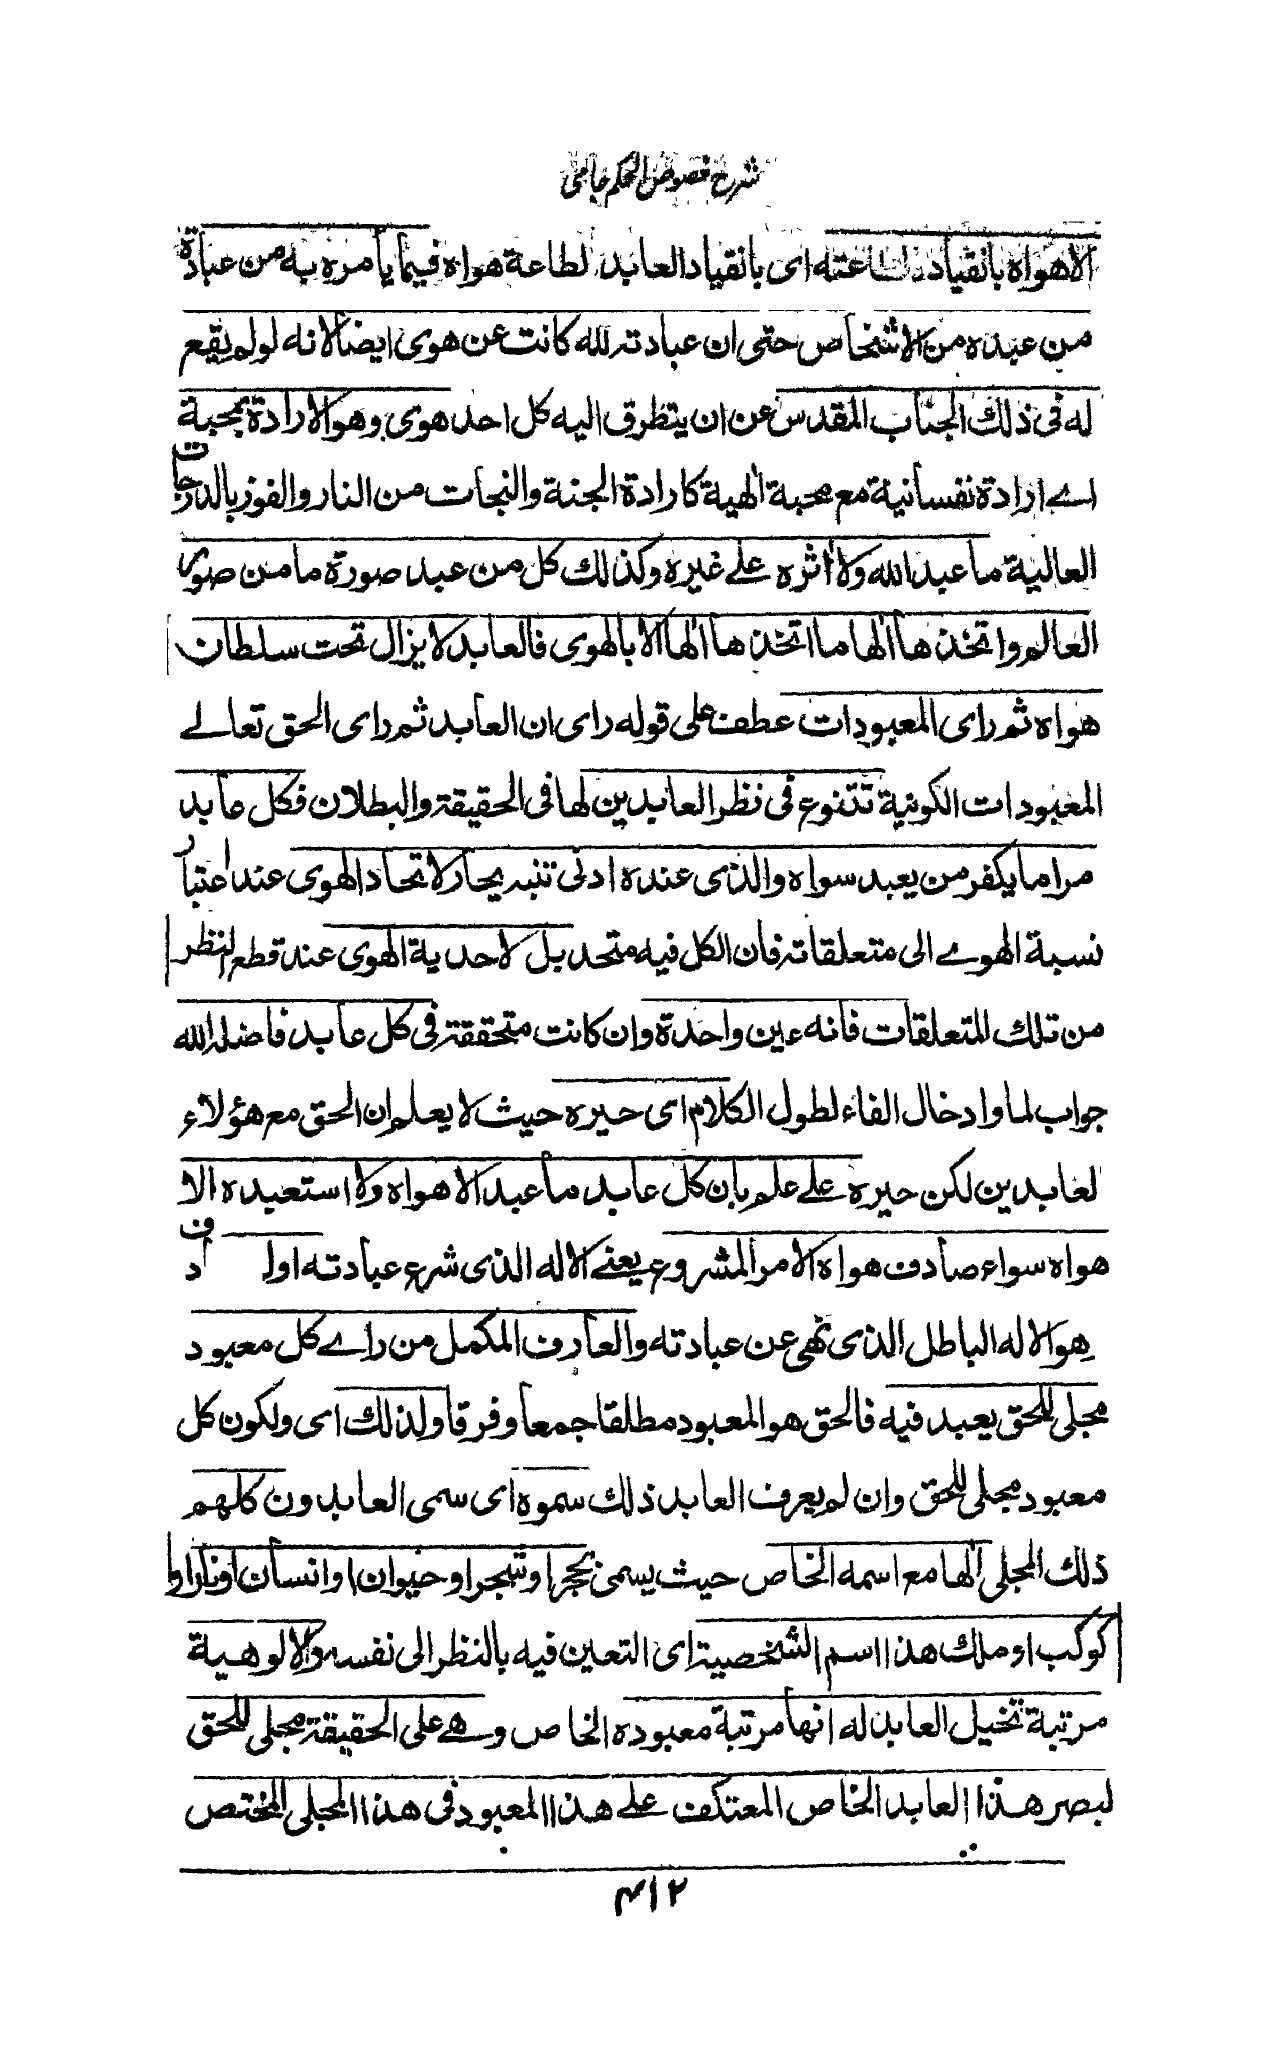 شرح فصوص الحكم جامی
الا هواه بانقياده لطاعته ای بانقياد العابد لطاعة هواه فيما يأمره به من عبادة
من عبده من الاشخاص حتى ان عبادته لله كانت عن هوى ايضا لانه لو لم يقع
له فى ذلك الجناب المقدس عن ان يتطرق اليه كل احد هوى وهو الارادة بمحبة
اے ارادة نفسانية مع محبة الٰهية كارادة الجنة والنجات من النار والفوز بالدرجات
العالية ما عبد الله ولا اٰثره علے غيره وكذلك كل من عبد صورة ما من صور
العالم واتخذها الٰها ما اتخذها الٰها الا بالهوى فالعابد لا يزال تحت سلطان
هواه ثم رای المعبودات عطف على قوله رای ان العابد ثم رای الحق تعالے
المعبودات الكونية تتنوع فى نظر العابدين لها فى الحقيقة والبطلان فكل عابد
مراما يكفر من يعبد سواه والذى عنده ادنى تنبه يحار لاتحاد الهوى عند اعتبار
نسبة الهوے الى متعلقاته فان الكل فيه متحد بل لاحدية الهوى عند قطع النظر
من تلك المتعلقات فانه عين واحدة وان كانت متحققة فى كل عابد فاضله الله
جواب لما وادخال الفاء لطول الكلام ای حيره حيث لا يعلم ان الحق مع هؤلاء
لعابدين لكن حيره علے علم بان كل عابد ما عبد الا هواه ولا استعبده الا
هواه سواء صادف هواه الامر المشروع يعنے الاله الذى شرع عبادته اولـ ادف
هو الاله الباطل الذى نهى عن عبادته والعارف المكمل من راے كل معبود
مجلى للحق يعبد فيه فالحق هو المعبود مطلقا جمعا وفرقا ولذلك ای ولكون كل
معبود مجلى للحق وان لم يعرف العابد ذلك سموه ای سمى العابدون كلهم
ذلك المجلى الٰها مع اسمه الخاص حيث يسمى بحجر او شجر او حيوان او انسان او نار او
كوكب او ملك هذا اسم الشخصية ای التعين فيه بالنظر الى نفسه والالوهية
مرتبة تخيل العابد له انها مرتبة معبوده الخاص وهے على الحقيقة مجلى للحق
لبصر هذا العابد الخاص المعتكف علے هذا المعبود فى هذا المجلى المختص
۴۱۲